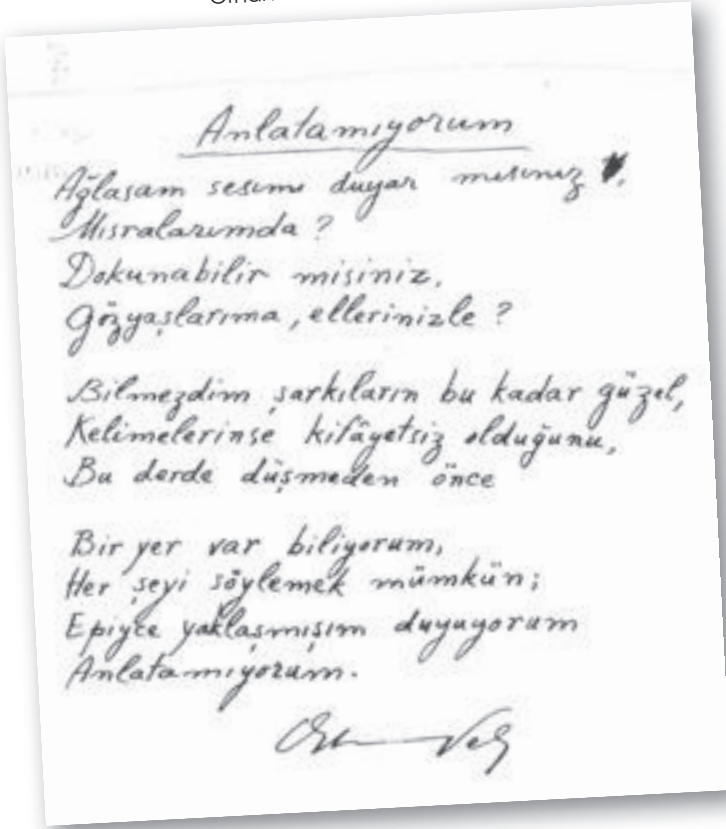 Anlatamıyorum
Ağlasam sesimi duyar mısınız,
Mısralarımda ?
Dokunabilir misiniz,
Gözyaşlarıma, ellerinizle ?
Bilmezdim şarkıların bu kadar güzel,
Kelimelerinse kifâyetsiz olduğunu,
Bu derde düşmeden önce
Bir yer var biliyorum,
Her şeyi söylemek mümkün;
Epiyce yaklaşmışım duyuyorum
Anlatamıyorum.